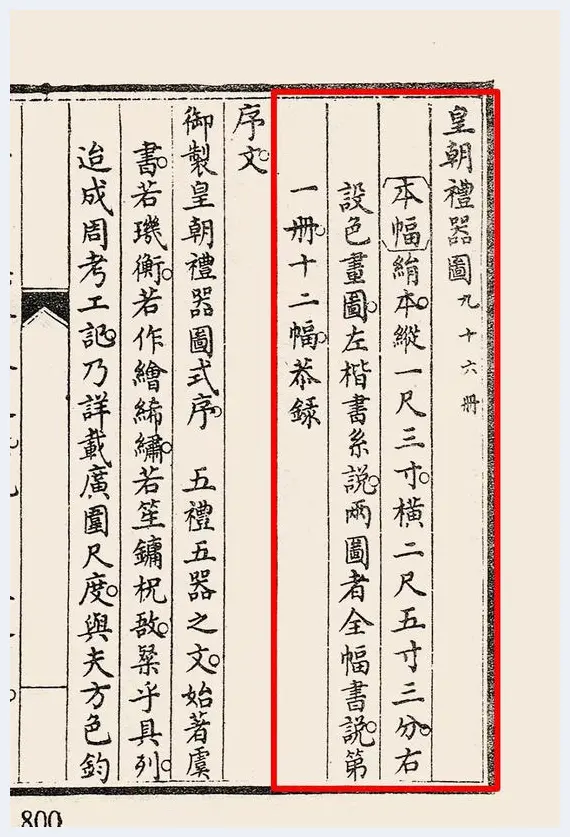 皇朝禮器圖九十六册
本幅絹本。縱一尺三寸。橫二尺五寸三分。右
設色畫圖。左楷書系說。兩圖者全幅書說。第
一册。十二幅。恭錄
序文。
御製皇朝禮器圖式序。 五禮五器之文。始著虞
書。若璣衡。若作繪絺繡。若笙鏞柷敔。槩乎具列。
迨成周考工記。乃詳載廣圍尺度。與夫方色鈞
800